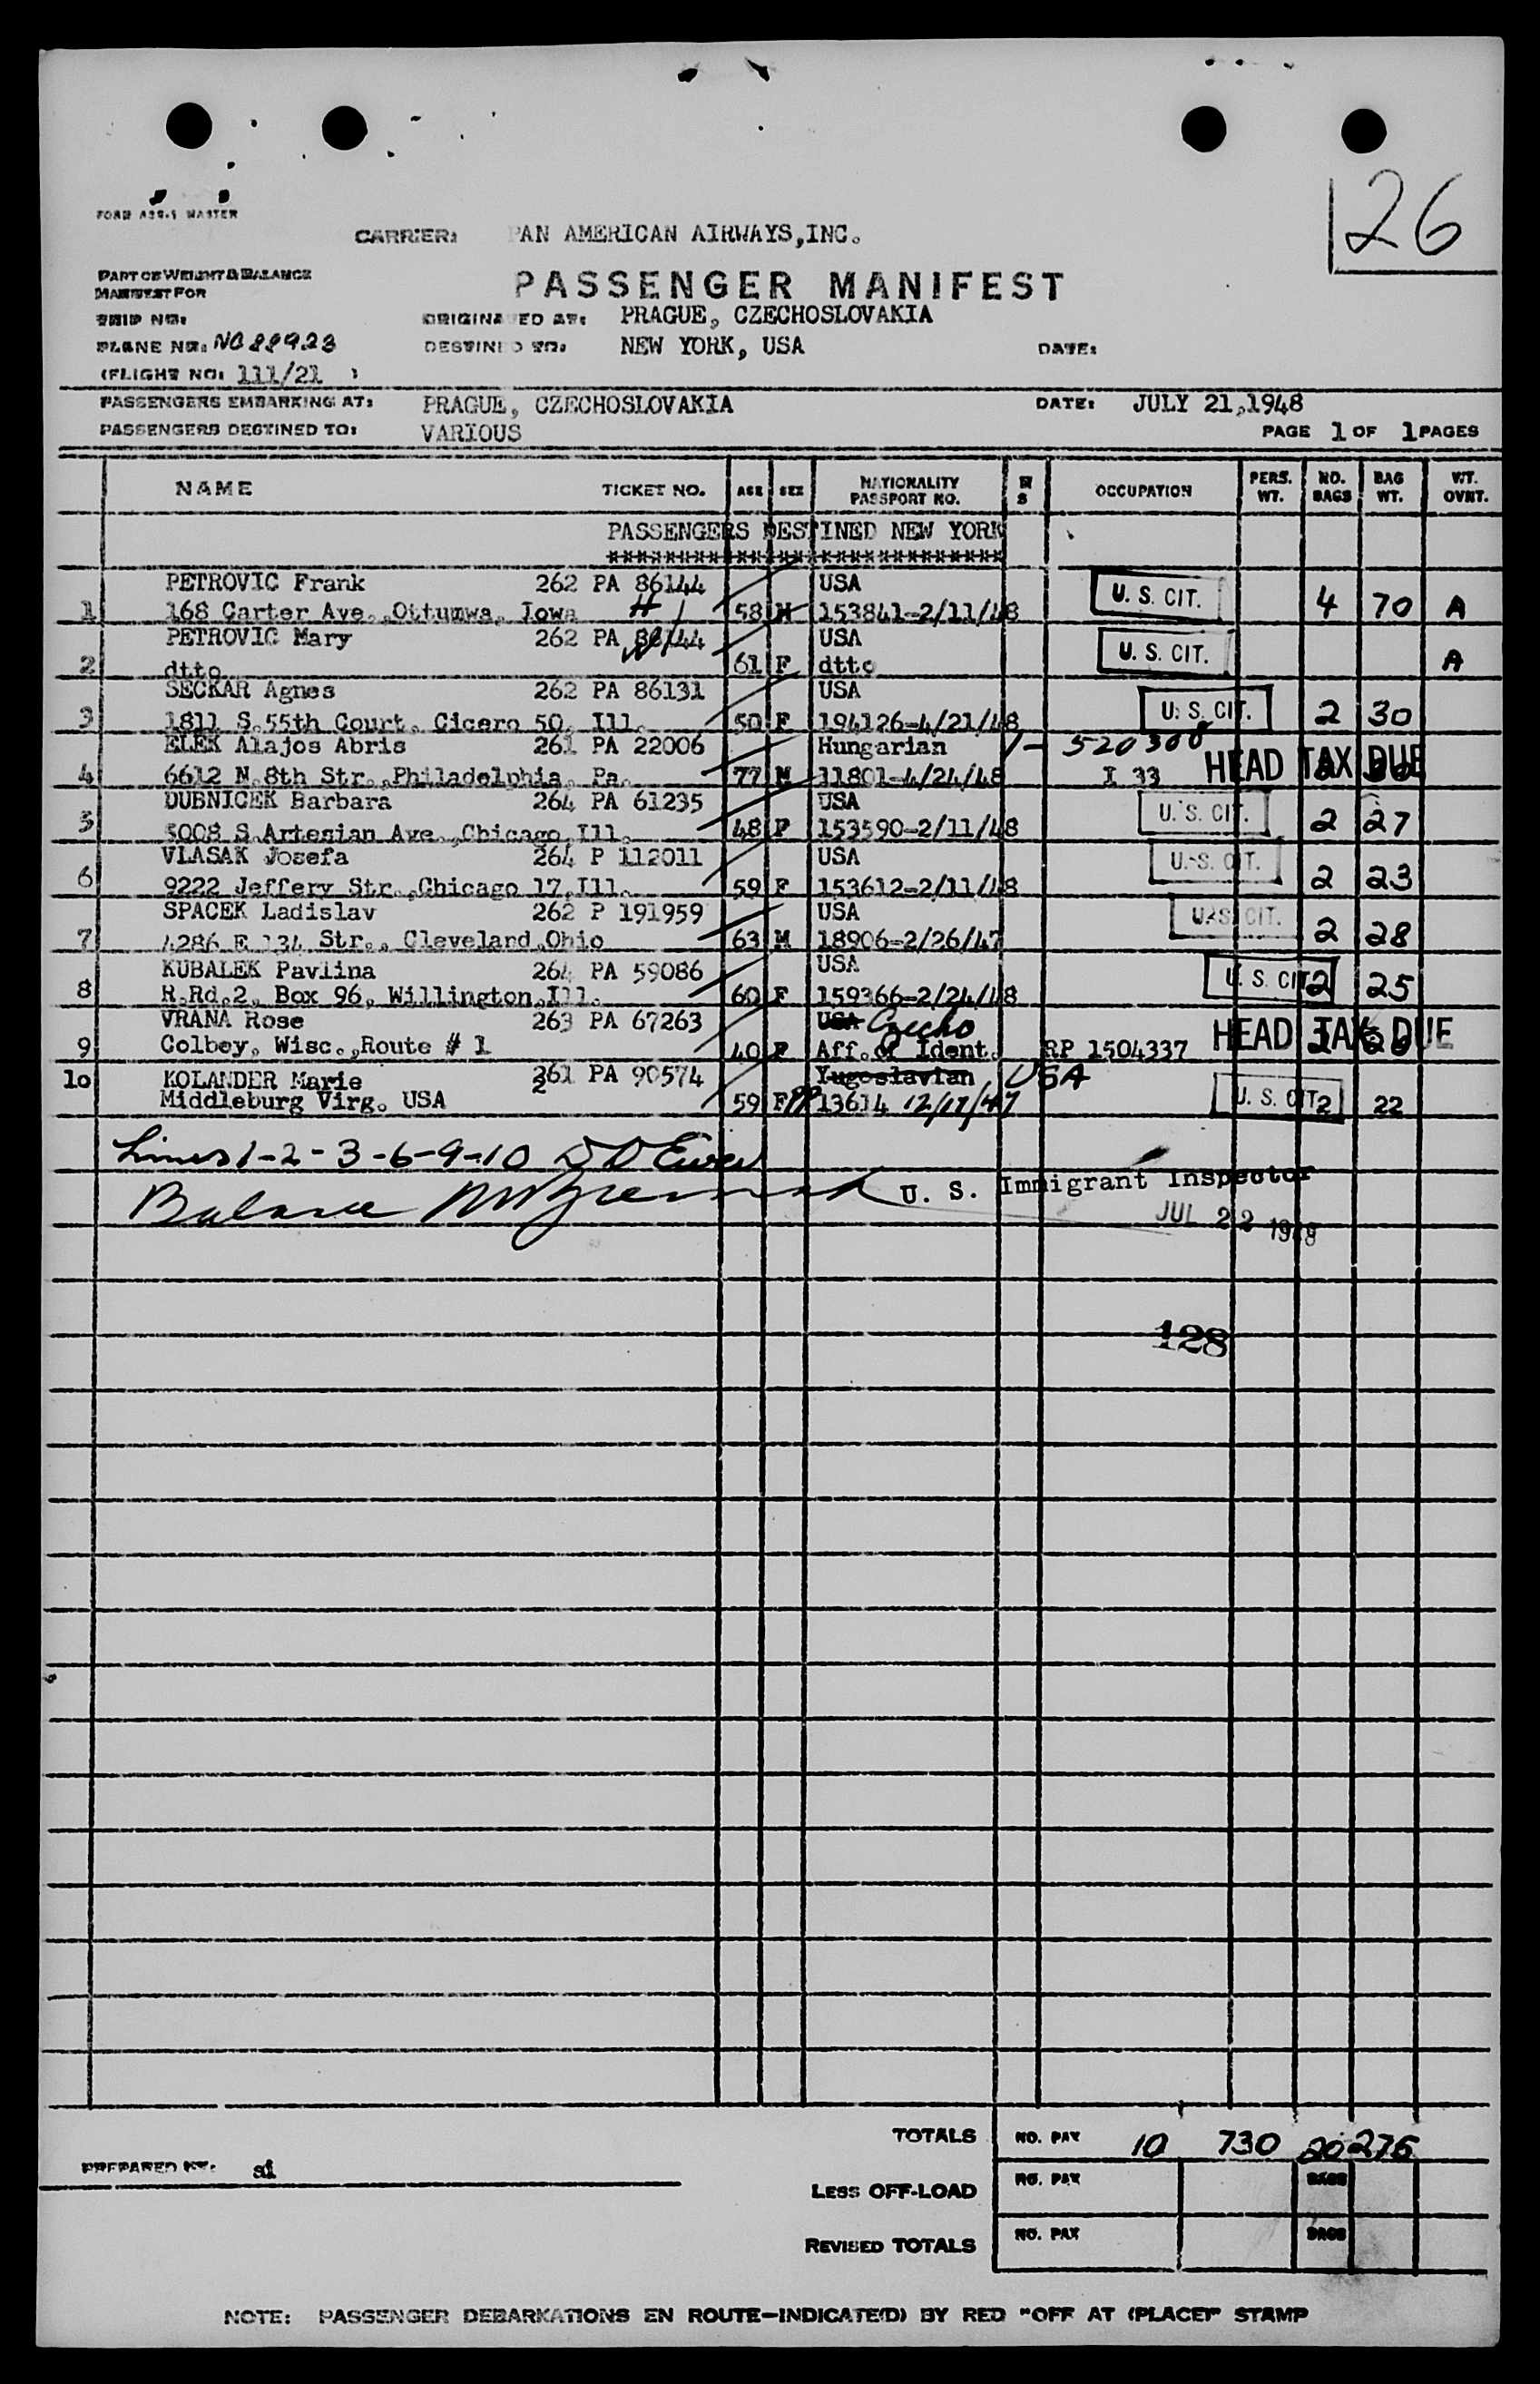 26
FORM ASS-1 MASTER
CARRIER: PAN AMERICAN AIRWAYS,INC.
PART OF WEIGHT & BALANCE
MANIFEST FOR
PASSENGER MANIFEST
TRIP NO:
ORIGINATED AT: PRAGUE, CZECHOSLOVAKIA
PLANE NO: NC88923
DESTINED TO: NEW YORK, USA
DATE:
(FLIGHT NO: 111/21 )
PASSENGERS EMBARKING AT: PRAGUE, CZECHOSLOVAKIA DATE: JULY 21,1948
PASSENGERS DESTINED TO: VARIOUS PAGE 1 OF 1 PAGES
NAME TICKET NO. AGE SEX NATIONALITY PASSPORT NO. M S OCCUPATION PERS. WT. NO. BAGS BAG WT. WT. OVNT.
PASSENGERS DESTINED NEW YORK
PETROVIC Frank 262 PA 86144 USA U. S. CIT.
1 168 Carter Ave.,Ottumwa, Iowa 58 M 153841-2/11/48 4 70 A
PETROVIC Mary 262 PA 86144 USA U. S. CIT.
2 dtto 61 F dtto A
SECKAR Agnes 262 PA 86131 USA
3 1811 S.55th Court, Cicero 50, Ill. 50 F 194126-4/21/48 U. S. CIT. 2 30
ELEK Alajos Abris 261 PA 22006 Hungarian 1- 520308
4 6612 N.8th Str.,Philadelphia, Pa. 77 M 11801-4/24/48 I 33 HEAD TAX DUE
DUBNICEK Barbara 264 PA 61235 USA U. S. CIT.
5 5008 S.Artesian Ave.,Chicago,Ill. 48 F 153590-2/11/48 2 27
VLASAK Josefa 264 P 112011 USA U. S. CIT.
6 9222 Jeffery Str.,Chicago 17,Ill. 59 F 153612-2/11/48 2 23
SPACEK Ladislav 262 P 191959 USA U. S. CIT.
7 4286 E 134 Str., Cleveland,Ohio 63 M 18906-2/26/47 2 28
KUBALEK Pavlina 264 PA 59086 USA U. S. CIT.
8 R.Rd.2, Box 96, Willington,Ill. 60 F 159366-2/24/48 2 25
VRANA Rose 263 PA 67263 USA Czecho
9 Colbey, Wisc.,Route # 1 40 F Aff.of Ident. RP 1504337 HEAD TAX DUE
10 KOLANDER Marie 261 PA 90574 Yugoslavian USA
Middleburg Virg. USA 59 F PP 13614 12/17/47 U. S. CIT. 2 22
Lines 1-2-3-6-9-10
Balance
U. S. Immigrant Inspector
JUL 22 1948
128
TOTALS NO. PAX 10 730 20 276
PREPARED BY: si
LESS OFF-LOAD NO. PAX BAGS
REVISED TOTALS NO. PAX BAGS
NOTE: PASSENGER DEBARKATIONS EN ROUTE-INDICATE(D) BY RED "OFF AT (PLACE)" STAMP